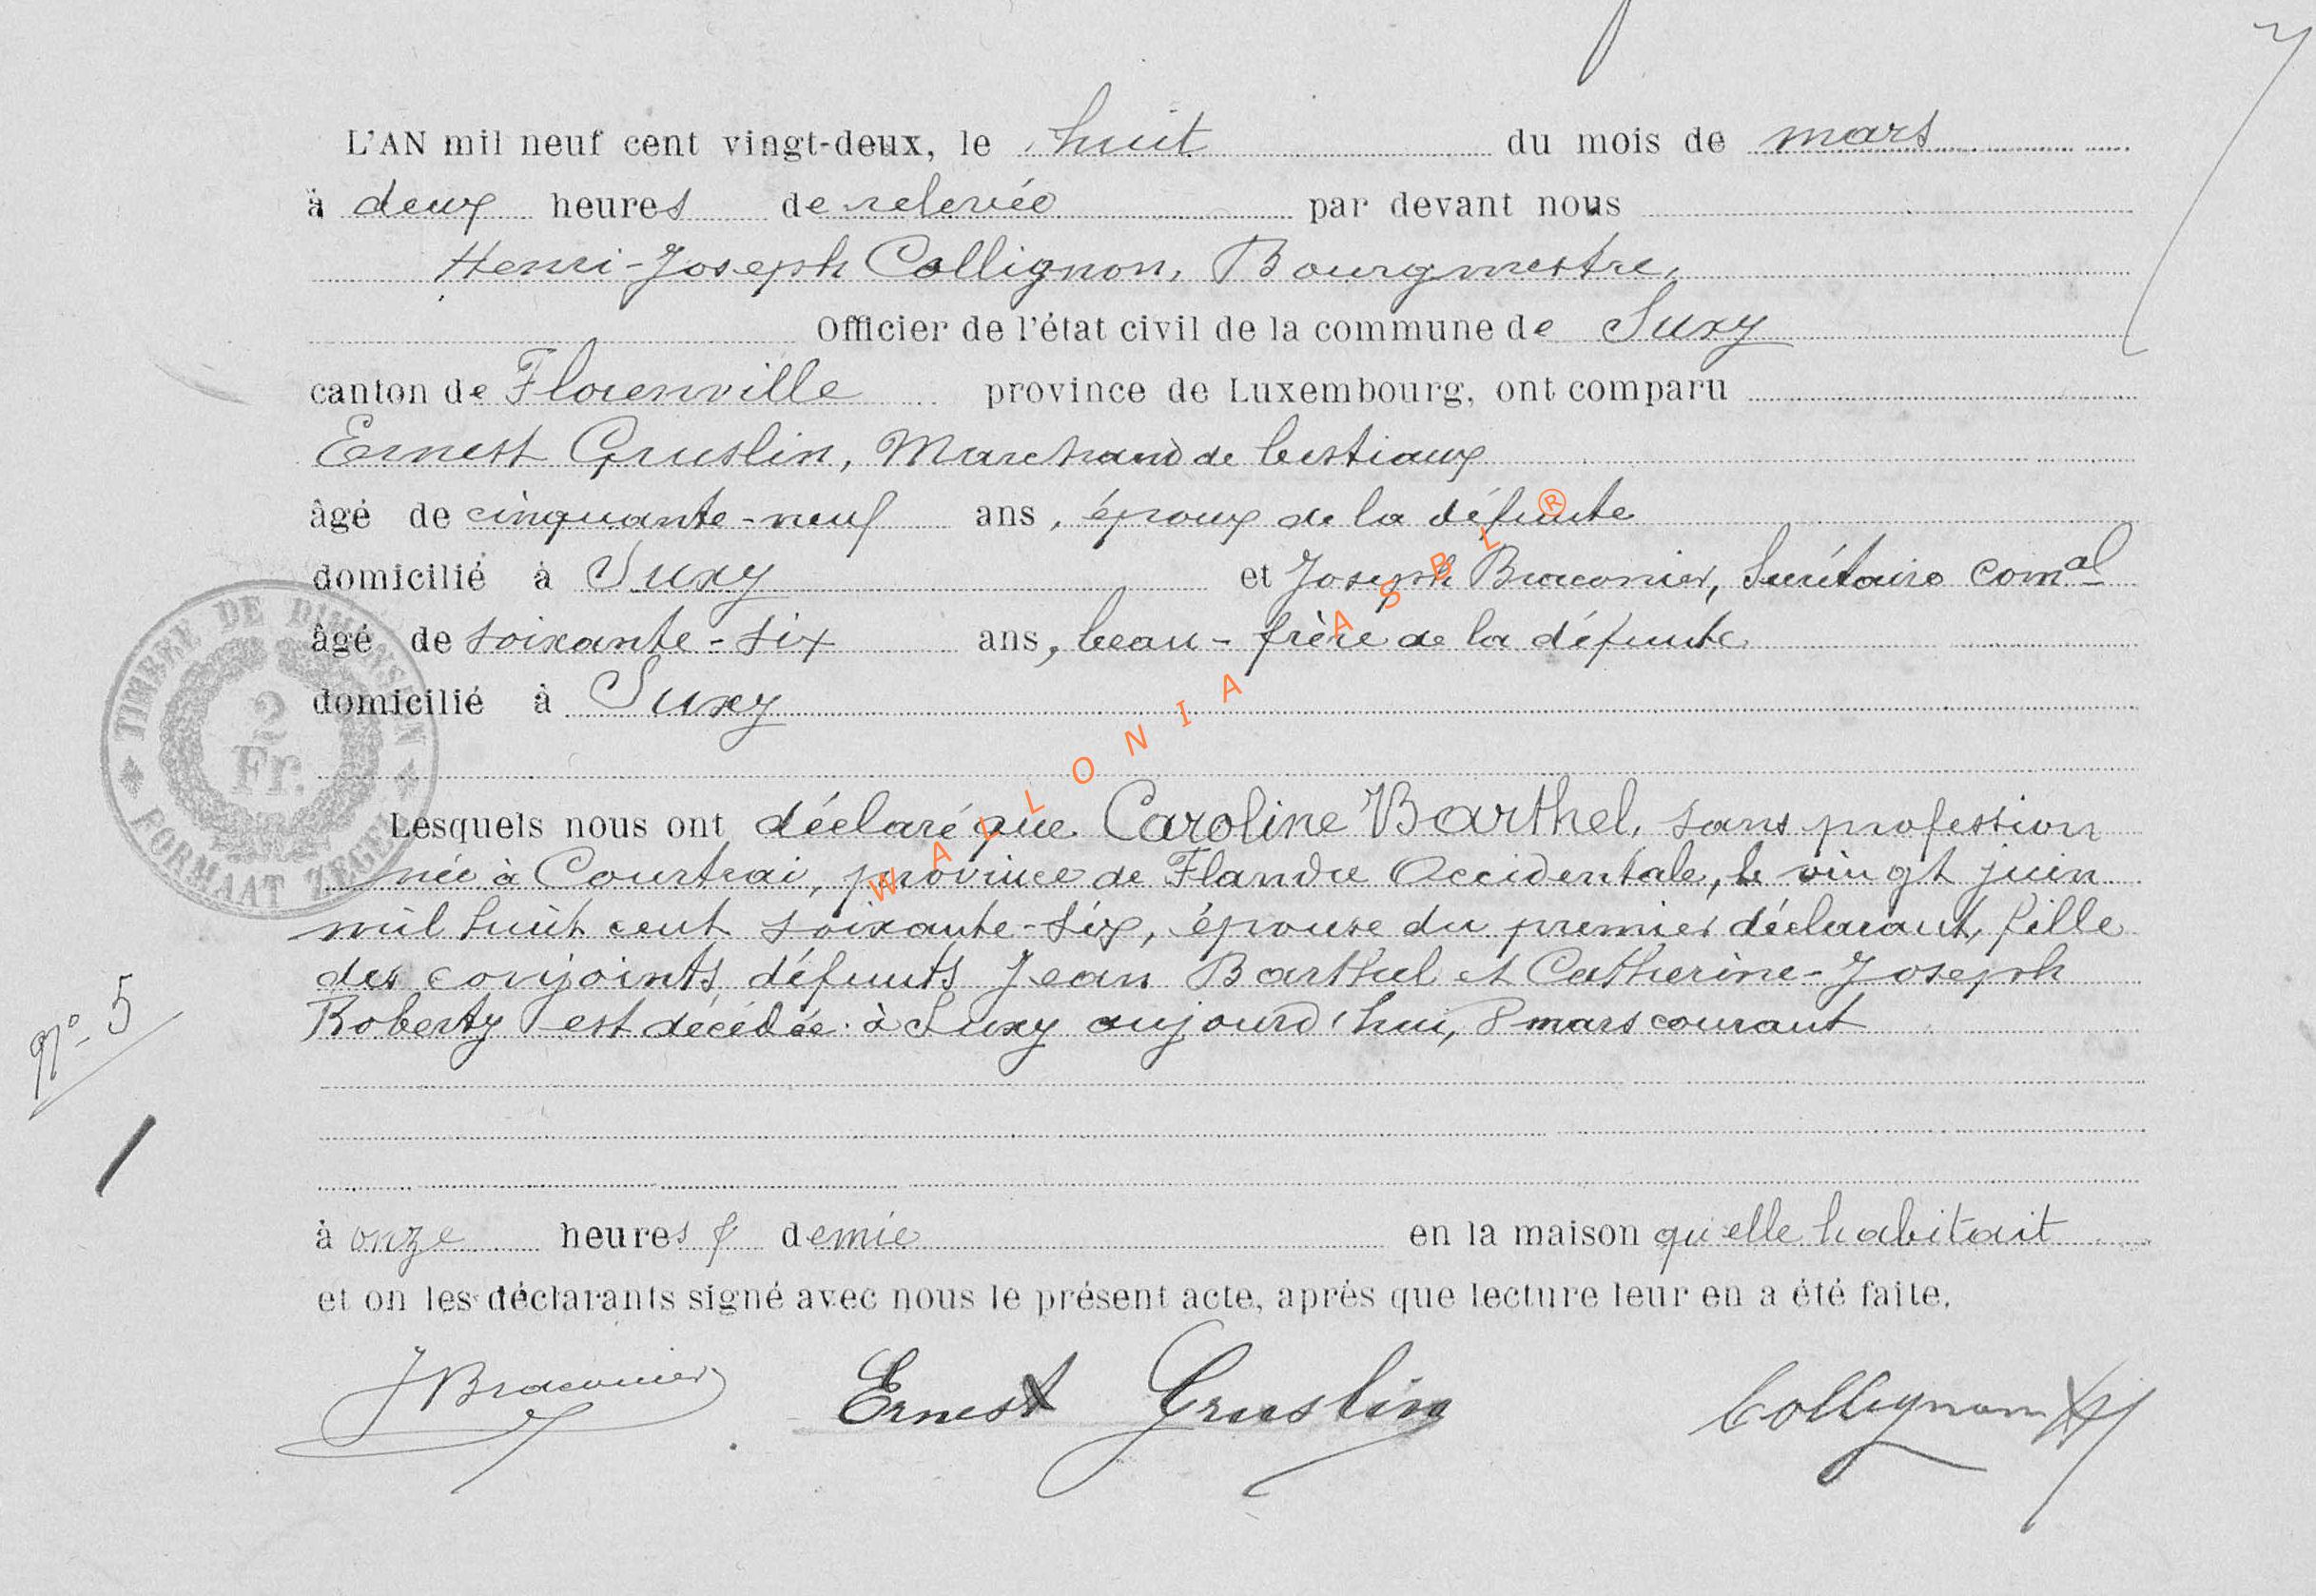 L'AN mil neuf cent vingt-deux, le huit du mois de mars
à deux heures de relevée par devant nous
Henri-Joseph Collignon, Bourgmestre,
Officier de l'état civil de la commune de Suxy
canton de Florenville province de Luxembourg, ont comparu
Ernest Gruslin, Marchand de bestiaux
âgé de cinquante-neuf ans, époux de la défunte
domicilié à Suxy et Joseph Braconier, Secrétaire comal
âgé de soixante-six ans, beau-frère de la défunte
domicilié à Suxy
TIMBRE DE DIMENSION
2
Fr.
FORMAAT ZEGEL
WALLONIA ASBL ®
Lesquels nous ont déclaré que Caroline Barthel, sans profession
née à Courtrai, province de Flandre Occidentale, le vingt juin
mil huit cent soixante-six, épouse du premier déclarant, fille
des conjoints défunts Jean Barthel et Catherine-Joseph
N° 5
Roberty est décédée à Suxy aujourd'hui, 8 mars courant
à onze heures & demie en la maison qu'elle habitait
et on les déclarants signé avec nous le présent acte, après que lecture leur en a été faite.
J Braconier Ernest Gruslin Collignon HJ